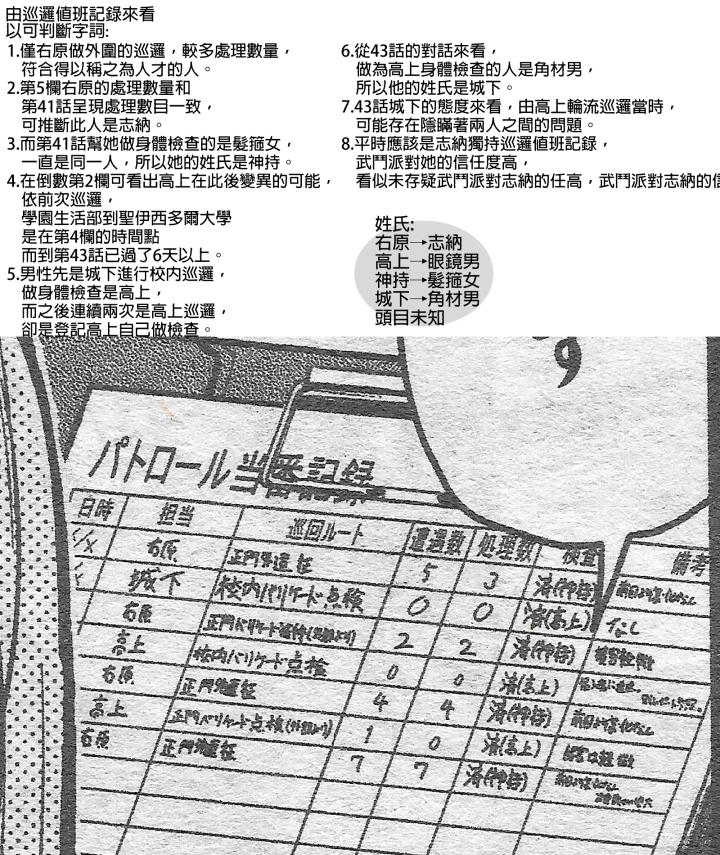 由巡邏值班記錄來看
以可判斷字詞:
1.僅右原做外圍的巡邏，較多處理數量，
符合得以稱之為人才的人。
2.第5欄右原的處理數量和
第41話呈現處理數目一致，
可推斷此人是志納。
3.而第41話幫她做身體檢查的是髮箍女，
一直是同一人，所以她的姓氏是神持。
4.在倒數第2欄可看出高上在此後變異的可能，
依前次巡邏，
學園生活部到聖伊西多爾大學
是在第4欄的時間點
而到第43話已過了6天以上。
5.男性先是城下進行校內巡邏，
做身體檢查是高上，
而之後連續兩次是高上巡邏，
卻是登記高上自己做檢查。
6.從43話的對話來看，
做為高上身體檢查的人是角材男，
所以他的姓氏是城下。
7.43話城下的態度來看，由高上輪流巡邏當時，
可能存在隱瞞著兩人之間的問題。
8.平時應該是志納獨持巡邏值班記錄，
武鬥派對她的信任度高，
看似未存疑武鬥派對志納的任高，武鬥派對志納的信
姓氏:
右原→志納
高上→眼鏡男
神持→髮箍女
城下→角材男
頭目未知
う
パトロール当番記録
日時 担当 巡回ルート 遭遇数 処理数 検査 備考
右原 正門外遠征 5 3 済(神持) 前回より変化なし
城下 校内バリケード点検 0 0 済(高上) なし
右原 正門バリケード補修(外側より) 2 2 済(神持)
高上 校内バリケード点検 0 0 済(高上)
右原 正門外遠征 4 4 済(神持) 前回より変化なし
高上 正門バリケード点検(外側より) 1 0 済(高上)
右原 正門外遠征 7 7 済(神持) 前回より変化なし